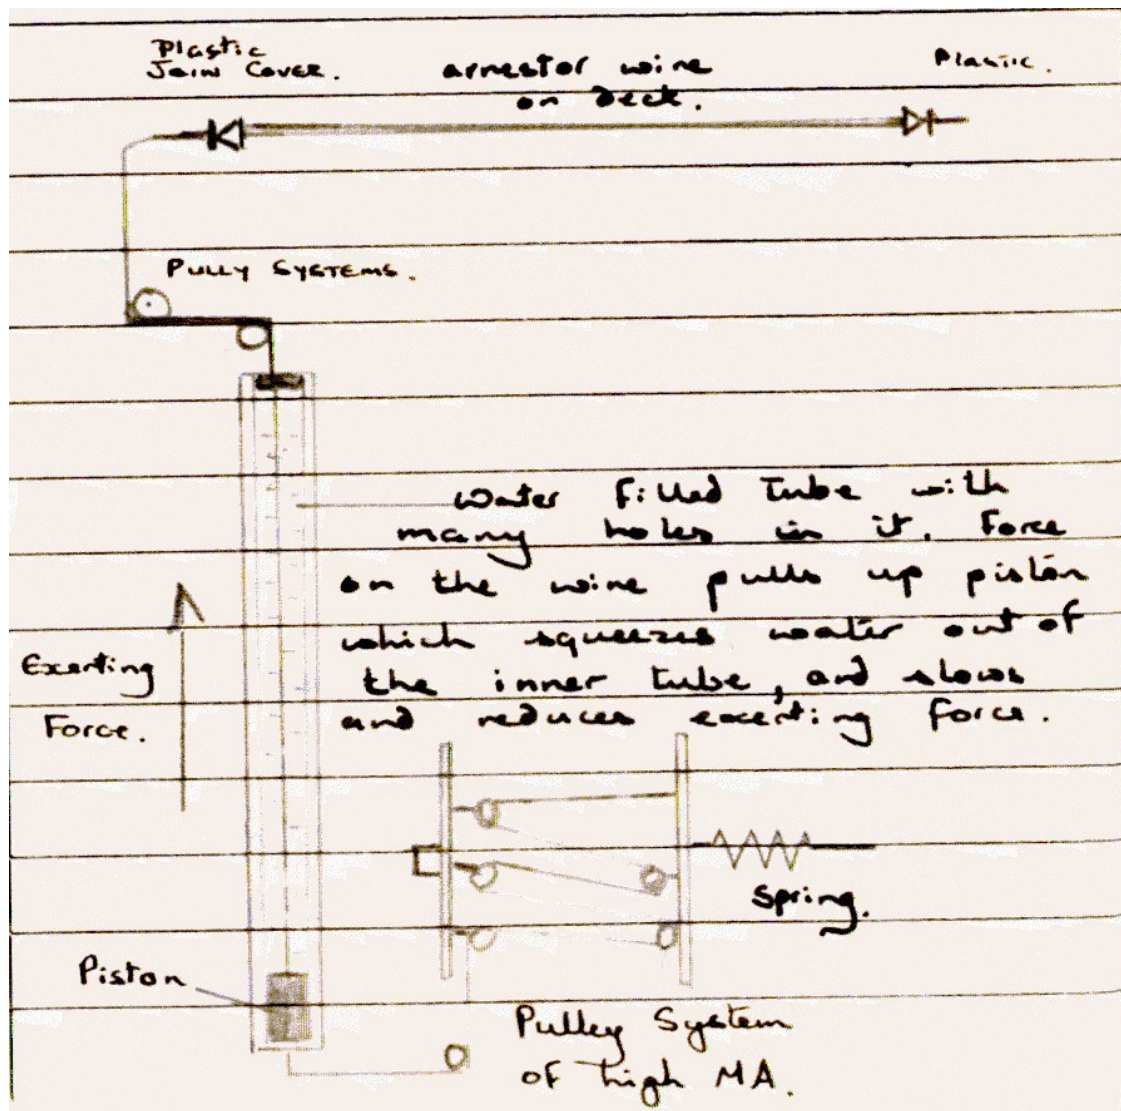 Plastic
Join Cover.
arrestor wire
on deck.
Plastic.
Pully Systems.
Water filled tube with
many holes in it. Force
on the wire pulls up piston
which squeezes water out of
the inner tube, and slows
and reduces excerting force.
Exerting
Force.
Spring.
Piston
Pulley System
of high MA.